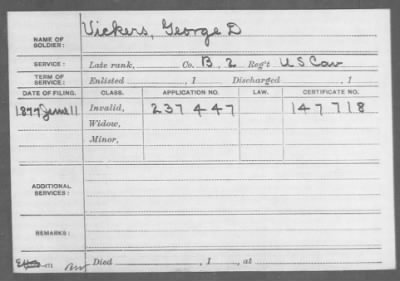 NAME OF SOLDIER: Vickers, George D
SERVICE: Late rank, Co. B, 2 Reg't U S Cav
TERM OF SERVICE: Enlisted , 1 Discharged , 1
DATE OF FILING. CLASS. APPLICATION NO. LAW. CERTIFICATE NO.
1877 June 11 Invalid, 237447 147718
Widow,
Minor,
ADDITIONAL SERVICES:
REMARKS:
Died , 1 , at